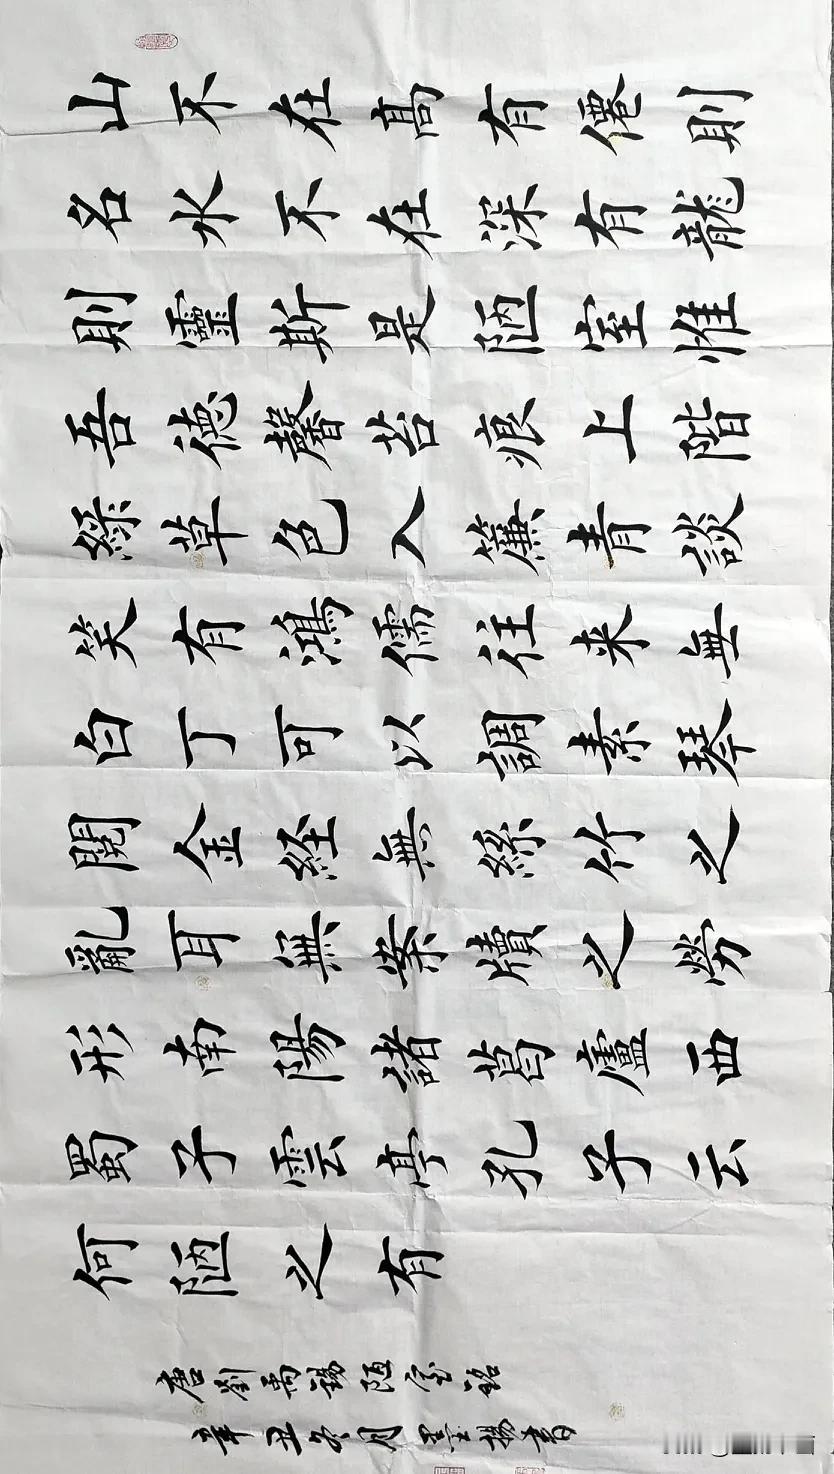 山不在髙有僊則
名水不在深有龍
則靈斯是陋室惟
吾德馨苔痕上階
綠草色入簾青談
笑有鴻儒往来無
白丁可以調素琴
閱金経無絲竹之
亂耳無案牘之勞
形南陽諸葛廬西
蜀子雲亭孔子云
何陋之有
唐劉禹錫陋室銘
辛丑冬月墨揚書